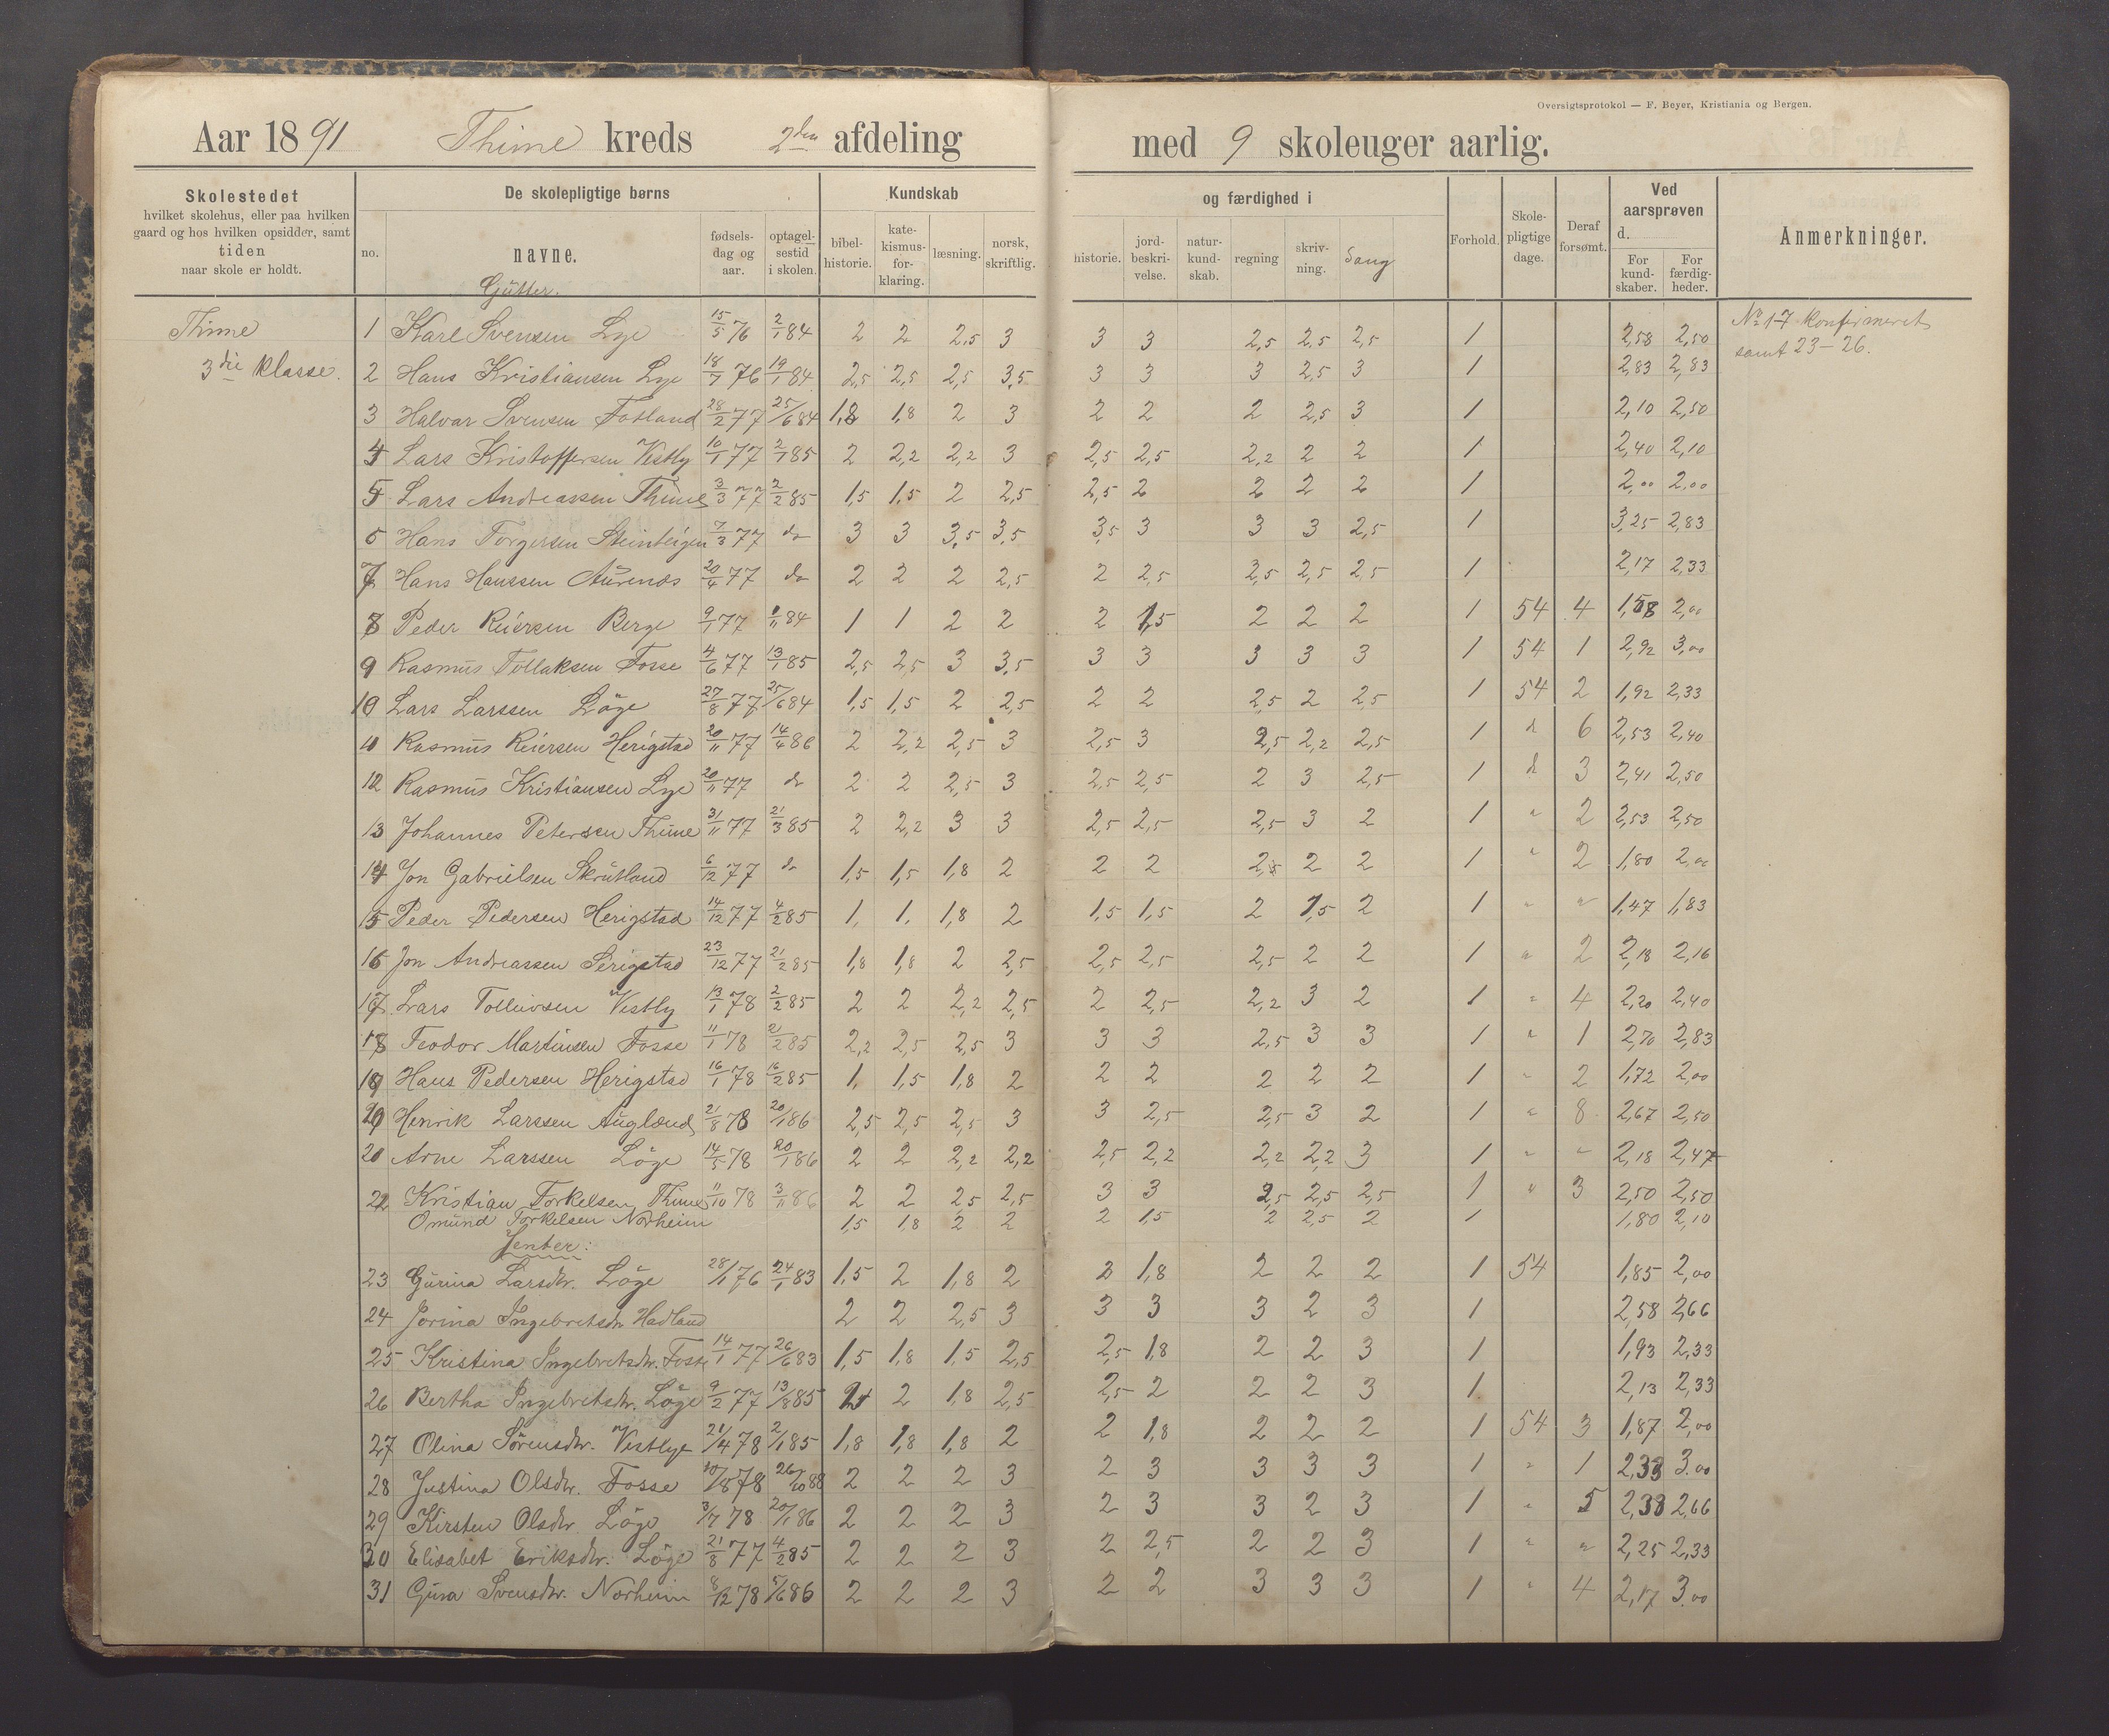 Oversigtsprotokol — F. Beyer, Kristiania og Bergen.
Aar 1891 Thime kreds 2den afdeling med 9 skoleuger aarlig.
Skolestedet hvilket skolehus, eller paa hvilken gaard og hos hvilken opsidder, samt tiden naar skole er holdt.
De skolepligtige børns
no. navne. fødsels-dag og aar. optagel-sestid i skolen.
Kundskab og færdighed i
bibel-historie. kate-kismus-for-klaring. læsning. norsk, skriftlig. historie. jord-beskri-velse. natur-kund-skab. regning skriv-ning. Sang
Forhold. Skole-pligtige dage. Deraf forsømt.
Ved aarsprøven d. For kund-skaber. For færdig-heder.
Anmerkninger.
Gutter.
Thime 1 Karl Svensen Lye 15/5 76 2/1 84 2 2 2,5 3 3 3 2,5 2,5 2,5 1 2,58 2,50 No 1-7 konfirmeret
3die klasse. 2 Hans Kristiansen Lye 18/7 76 19/1 84 2,5 2,5 2,5 3,5 3 3 3 2,5 3 1 2,83 2,83 samt 23-26.
3 Halvar Svensen Fotland 28/2 77 25/6 84 1,8 1,8 2 3 2 2 2 2,5 3 1 2,10 2,50
4 Lars Kristoffersen Vestly 10/1 77 2/1 85 2 2,2 2,2 3 2,5 2,5 2,2 2 2 1 2,40 2,10
5 Lars Andreassen Thime 3/3 77 2/2 85 1,5 1,5 2 2,5 2,5 2 2 2 2 1 2,00 2,00
6 Hans Torgersen Steinteigen 7/3 77 do 3 3 3,5 3,5 3,5 3 3 3 2,5 1 3,25 2,83
7 Hans Hanssen Aurenes 20/4 77 do 2 2 2 2,5 2 2,5 2,5 2,5 2,5 1 2,17 2,33
8 Peder Reiersen Berge 9/1 77 1/11 84 1 1 2 2 2 1,5 2 2 2 1 54 4 1,58 2,00
9 Rasmus Tollaksen Fosse 4/6 77 13/1 85 2,5 2,5 3 3,5 3 3 3 3 3 1 54 1 2,92 3,00
10 Lars Larssen Löge 27/8 77 25/6 84 1,5 1,5 2 2,5 2 2 2,5 2 2,5 1 54 2 1,92 2,33
11 Rasmus Reiersen Herigstad 20/11 77 14/4 86 2 2,2 2,5 3 2,5 3 2,5 2,2 2,5 1 d 6 2,53 2,40
12 Rasmus Kristiansen Lye 20/11 77 do 2 2 2,5 3 2,5 2,5 2 3 2,5 1 d 3 2,41 2,50
13 Johannes Petersen Thime 31/11 77 21/3 85 2 2,2 3 3 2,5 2,5 2,5 3 2 1 " 2 2,53 2,50
14 Jon Gabrielsen Skrutland 6/12 77 do 1,5 1,5 1,8 2 2 2 2,5 2 2 1 " 2 1,80 2,00
15 Peder Pedersen Herigstad 14/12 77 4/2 85 1, 1, 1,8 2 1,5 1,5 2 1,5 2 1 " " 1,47 1,83
16 Jon Andreassen Serigstad 23/12 77 21/2 85 1,8 1,8 2 2,5 2,5 2,5 2,5 2 2 1 " 2 2,18 2,16
17 Lars Tolleivsen Vestly 13/1 78 2/2 85 2 2 2,2 2,5 2 2,5 2,2 3 2 1 " 4 2,20 2,40
18 Teodor Martinsen Fosse 11/1 78 21/2 85 2,2 2,5 2,5 3 3 3 2,5 3 3 1 " 1 2,70 2,83
19 Hans Pedersen Herigstad 16/1 78 16/2 85 1, 1,5 1,8 2 2 2 2 2 2 1 " 2 1,72 2,00
20 Henrik Larssen Auglænd 21/8 78 20/1 86 2,5 2,5 2,5 3 3 2,5 2,5 3 2 1 " 8 2,67 2,50
20 Arne Larssen Löge 14/5 78 20/1 86 2 2 2,2 2,2 2,5 2,2 2,2 2,2 3 1 " " 2,18 2,47
22 Kristian Torkelsen Thime 11/10 78 3/11 86 2 2 2,5 2,5 3 3 2,5 2,5 2,5 1 " 3 2,50 2,50
Omund Torkelsen Norheim 1,5 1,8 2 2 2 1,5 2 2,5 2 1 1,80 2,10
Jenter:
23 Gurina Larsdtr. Löge 28/1 76 24/1 83 1,5 2 1,8 2 2 1,8 2 2 2 1 54 1,85 2,00
24 Jorina Ingebretsdtr Hadland 2 2 2,5 3 3 3 3 2 3 1 2,58 2,66
25 Kristina Ingebretsdtr. Fosse 14/1 77 26/6 83 1,5 1,8 1,5 2,5 2,5 1,8 2 2 3 1 1,93 2,33
26 Bertha Ingebretsdtr. Löge 9/2 77 13/8 85 2 2 1,8 2,5 2,5 2 2 2 3 1 2,13 2,33
27 Olina Sörensdtr. Vestlye 21/4 78 2/1 85 1,8 1,8 1,8 2 2 1,8 2 2 2 1 54 3 1,87 2,00
28 Justina Olsdtr. Fosse 30/8 78 26/10 88 2 2 2 3 2 3 3 3 3 1 " 1 2,33 3,00
29 Kirsten Olsdtr. Löge 3/7 78 20/1 86 2 2 2 3 2 3 3 2 3 1 " 5 2,38 2,66
30 Elisabet Eriksdtr. Löge 21/8 77 4/2 85 2 2 2 3 2 2,5 2 2 3 1 " " 2,25 2,33
31 Gura Svensdtr. Norheim 8/12 78 5/6 86 2 2 2 3 2 2 3 3 3 1 " 4 2,17 3,00